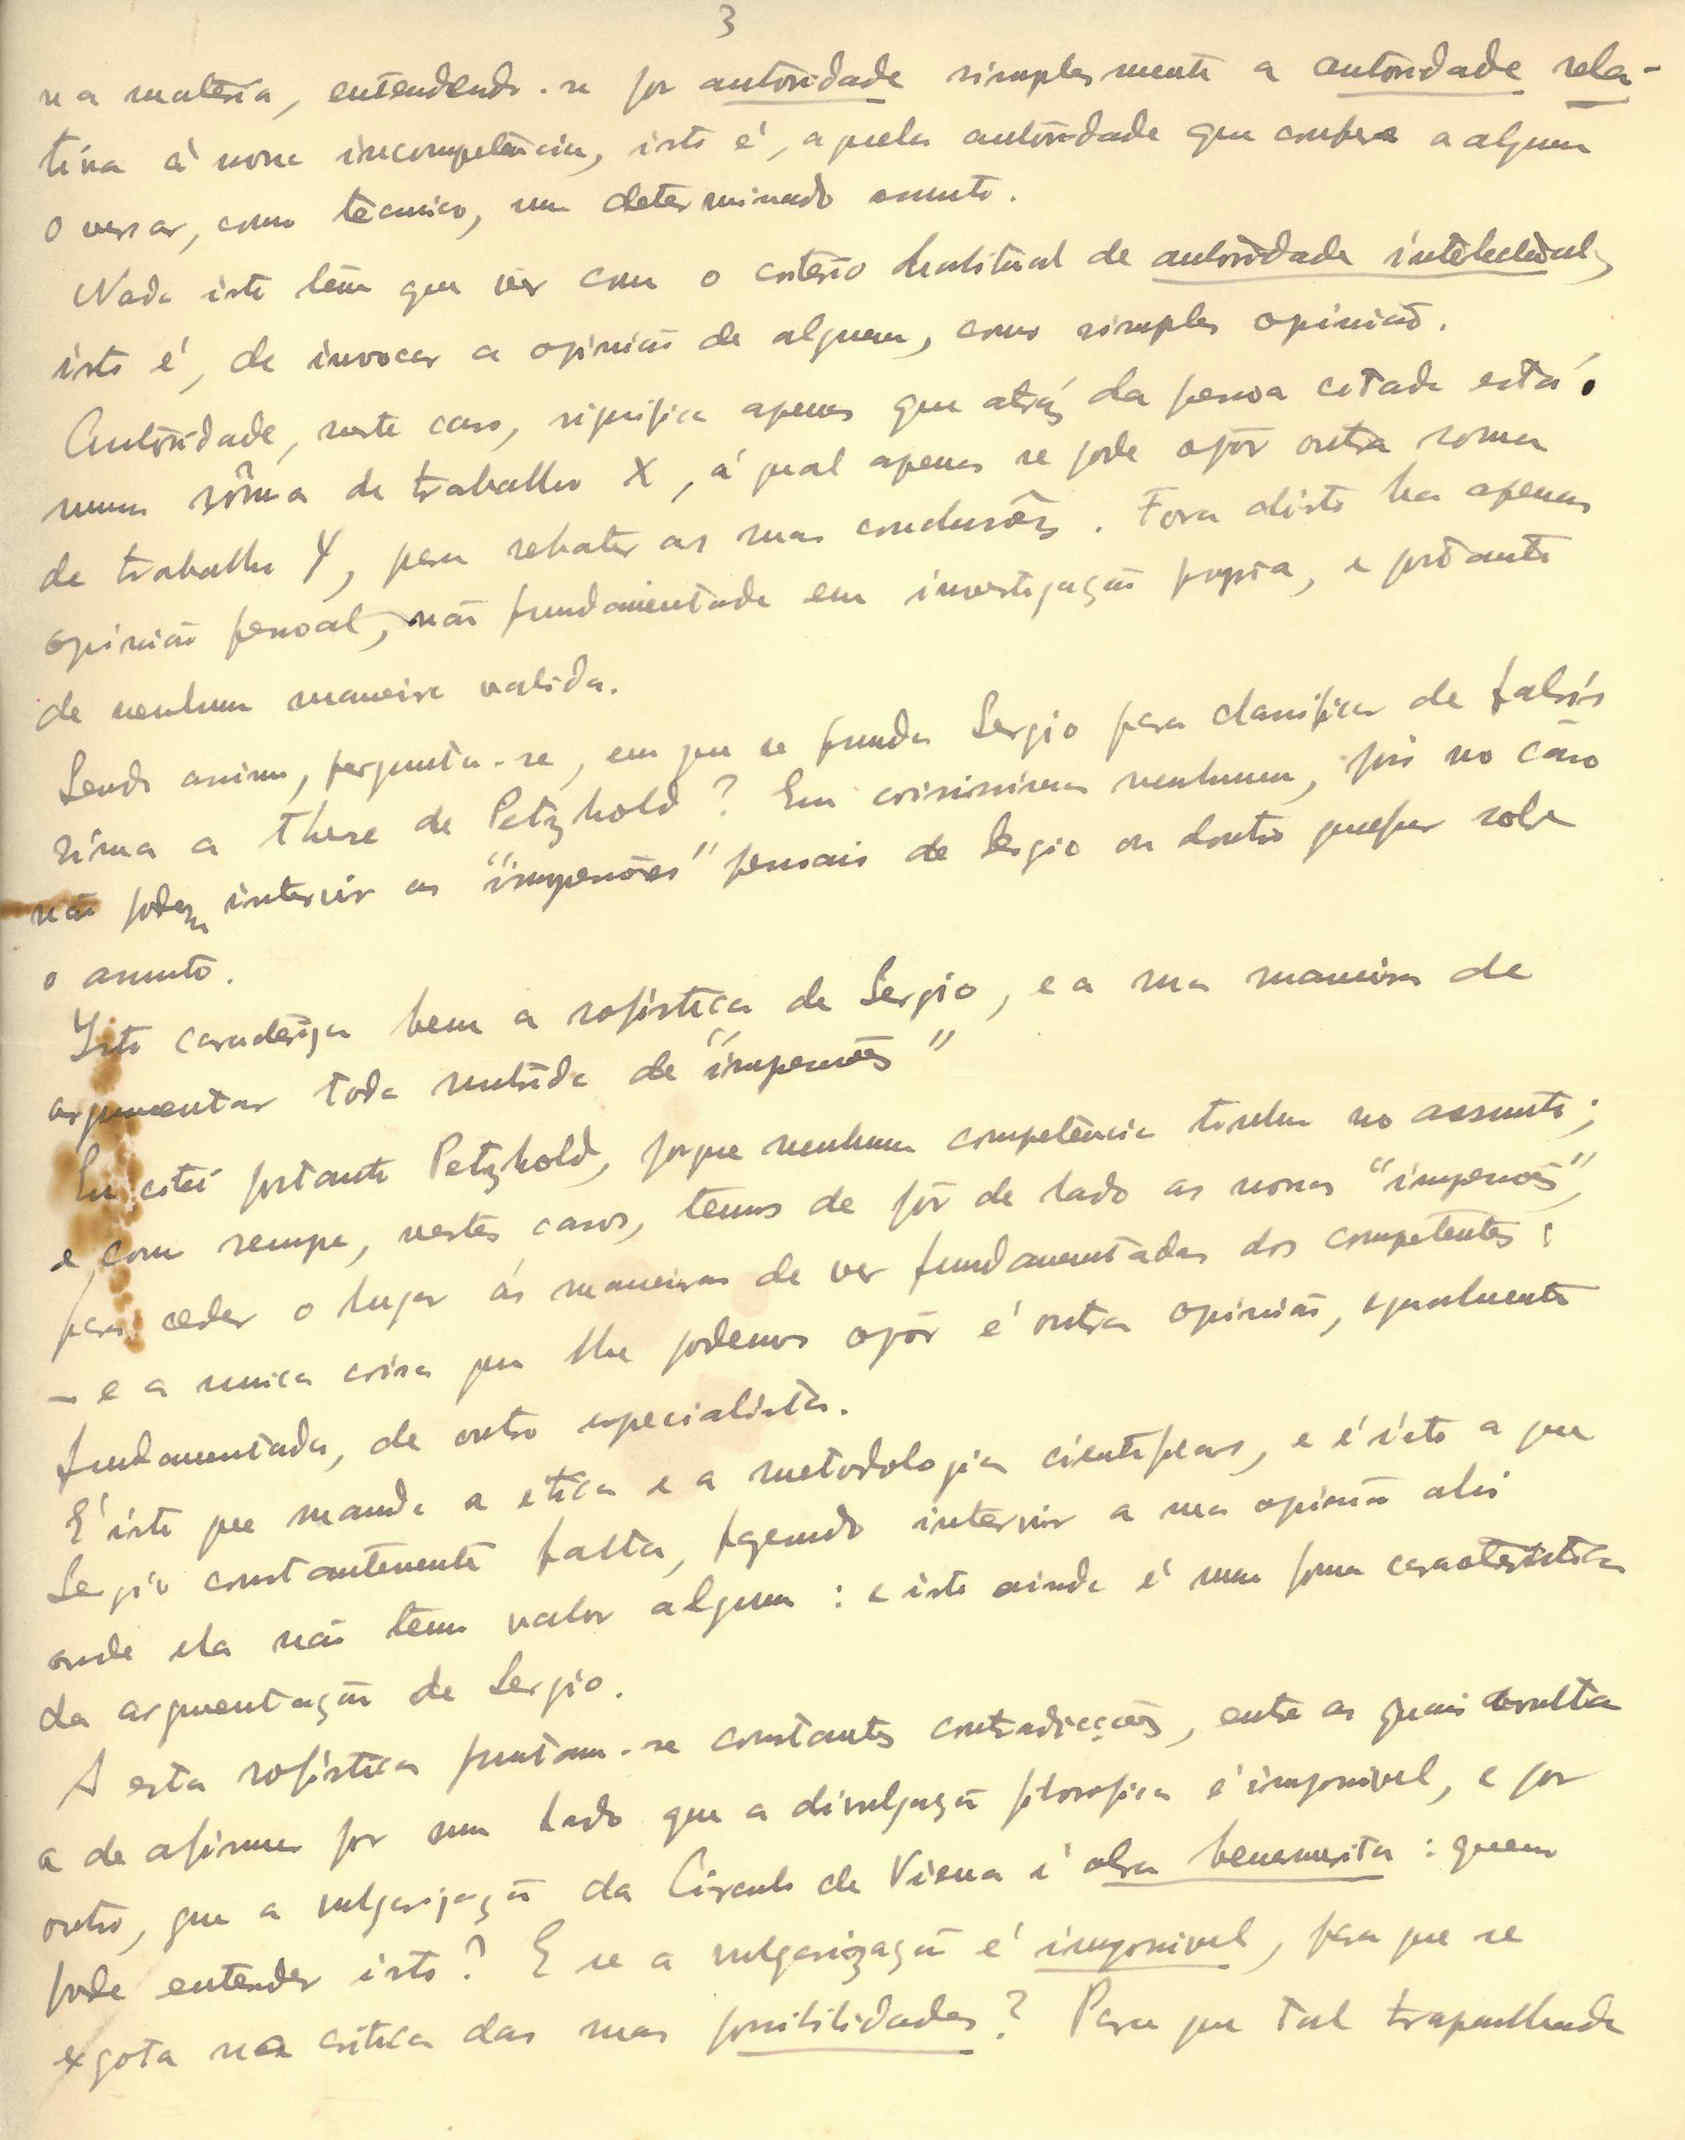 3
na materia, entendendo-se por autoridade simplesmente a autoridade rela-
tiva á nossa incompetência, isto é, aquela autoridade que confere a alguem
o versar, como tecnico, um determinado assunto.
Nada isto têm que vêr com o criterio habitual de autoridade intelectual,
isto é, de invocar a opinião de alguem, como simples opinião.
Autoridade, neste caso, significa apenas que atráz da pessoa citada está
uma sôma de trabalho X, á qual apenas se pode opôr outra soma
de trabalho Y, para rebater as suas conclusões. Fora disto ha apenas
opinião pessoal, não fundamentada em investigação propria, e portanto
de nenhuma maneira valida.
Sendo assim, pergunta-se, em que se funda Sergio para classificar de falsis
sima a these de Petzhold? Em coisissima nenhuma, pois no caso
não podem intervir as "impressões" pessoais de Sergio ou doutro qualquer sobre
o assunto.
Isto caracteriza bem a sofistica de Sergio, e a sua maneira de
argumentar toda nutrida de "impressões"
Eu citei portanto Petzhold, porque nenhuma competência tinha no assunto;
e, como sempre, nestes casos, temos de pôr de lado as nossas "impressões",
para ceder o lugar ás maneiras de ver fundamentadas dos competentes:
— e a unica coisa que lhe podemos opôr é outra opinião, egualmente
fundamentada, de outro especialista.
É isto que manda a etica e a metodologia cientificas, e é isto a que
Sergio constantemente falta, fazendo intervir a sua opinião ali
onde ela não tem valor algum: e isto ainda é uma forma caracteristica
da argumentação de Sergio.
A esta sofistica juntam-se constantes contradicções, entre as quais avulta
a de afirmar por um lado que a divulgação filosofica é impossivel, e por
outro, que a vulgarização da Circulo de Viena é obra benemerita: quem
pode entender isto? E se a vulgarização é impossivel, para que se
exgota na critica das suas possibilidades? Para que tal trapalhada